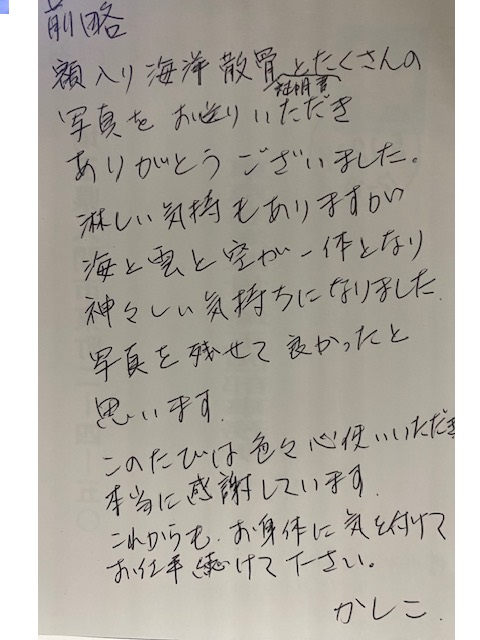 前略
額入り海洋散骨証明書とたくさんの
写真をお送りいただき
ありがとうございました。
淋しい気持もありますが
海と雲と空が一体となり
神々しい気持ちになりました.
写真を残せて良かったと
思います.
このたびは色々心使いいただき
本当に感謝しています.
これからも、お身体に気を付けて
お仕事続けて下さい。
かしこ.